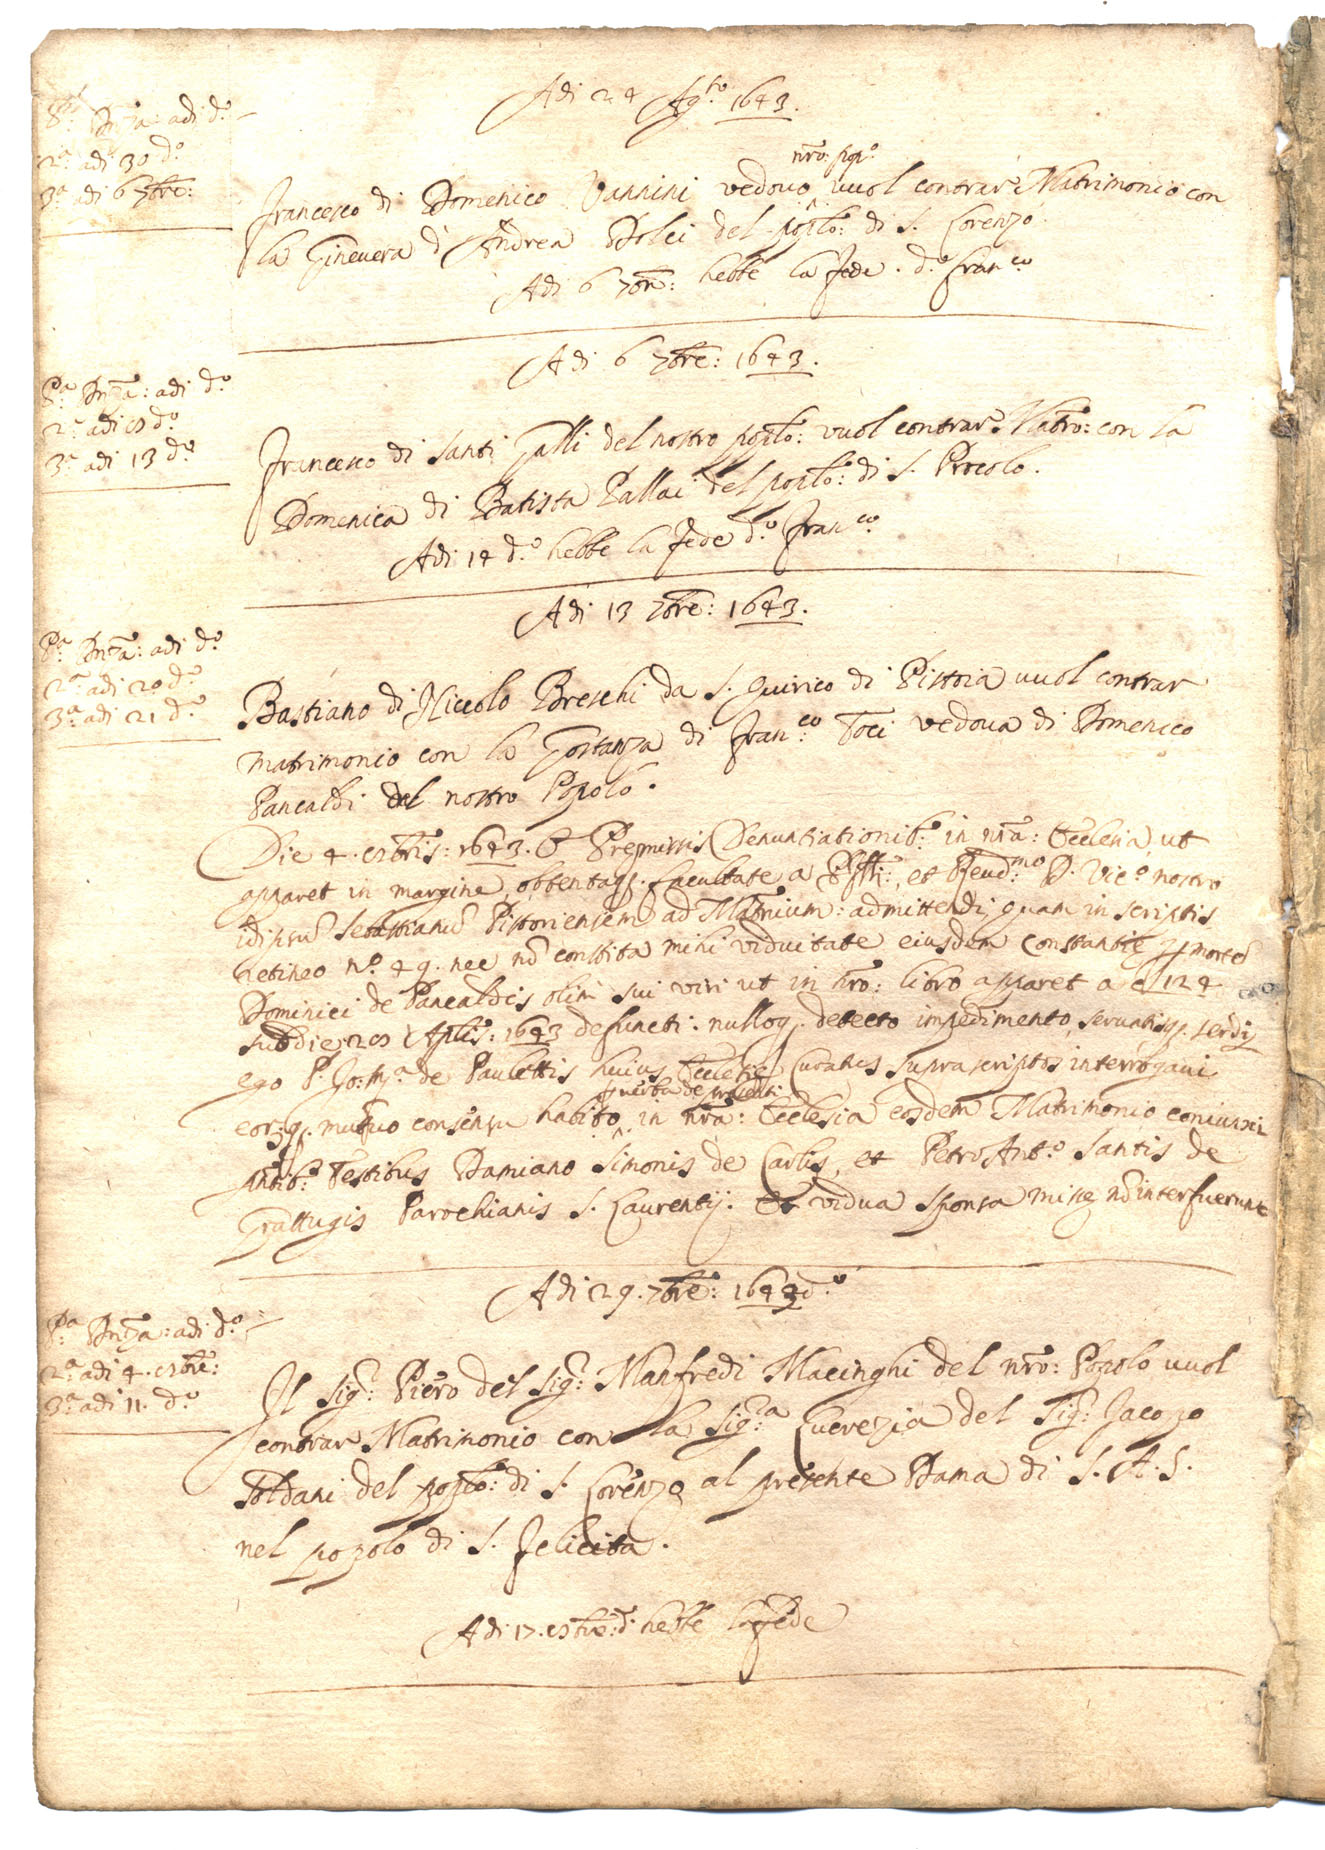 Adi 24 Ag.to 1643.
P.a Dn.za: adi d.o
2.a adi 30 d.o
3.a adi 6 7bre:
nro: pop.o
Francesco di Domenico Vannini vedovo ^ vuol contrar Matrimonio con
la Ginevera d'Andrea Dolci del poplo: di S. Lorenzo
Adi 6 7bre: hebbe la fede d.o Fran.co
Adi 6 7bre: 1643.
P.a Dnza: adi d.o
2.a adi d.o
3.a adi 13 d.o
Francesco di Santi Galli del nostro poplo: vuol contrar Matro: con la
Domenica di Batista Pallai del poplo: di S. Procolo.
Adi 14 d.o hebbe la fede d.o Fran.co
Adi 13 7bre: 1643.
P.a Dnza: adi d.o
2.a adi 20 d.o
3.a adi 21 d.o
Bastiano di Niccolo Breschi da S. Quirico di Pistoia vuol contrar
matrimonio con la Gostanza di Fran.co Toci vedova di Domenico
Pancaldi del nostro Popolo.
Die 4. 1643. Premissis Denuntiationib: in nra: Ecclesia, ut
apparet in margine, obtentaq. facultate a et Reud.mo D. Vic.o nostro
Sebastianu Pistoriensem ad Matrium: admittendi, quam in scriptis
retineo n.o 49. nec no constita mihi viduitate eiusdem Constantie p morte
Dominici de Pancaldis olim sui viri ut in nro: libro apparet a c 124
sub die Aplis: 1643 defuncti: nulloq. detecto impedimento, servatisq. servandis
ego P. de Paulettis huius Ecclesie Curatus suprascriptos interrogavi
p verba de presenti
eorq. mutuo consensu habito ^ in nra: Ecclesia eosdem Matrimonio coniunxi
pntib: Testibus Damiano Simonis de Carlis, et Petro Ant.o Santis de
Grattugis Parochianis S. Laurentij: Et vidua sponsa misse no interfuerunt
Adi 29. 7bre: 1643 d.o
P.a Dnza: adi d.o
2.a adi 4. 8bre:
3.a adi 11. d.o
Il Sig.r Piero del Sig.r Manfredi Macinghi del nro: Popolo vuol
contrar Matrimonio con la Sig.a Lucrezia del Sig.r Jacopo
Soldani del poplo: di S. Lorenzo al presente Dama di S. A. S.
nel popolo di S. Felicita.
Adi 17. 8bre: d. hebbe la fede